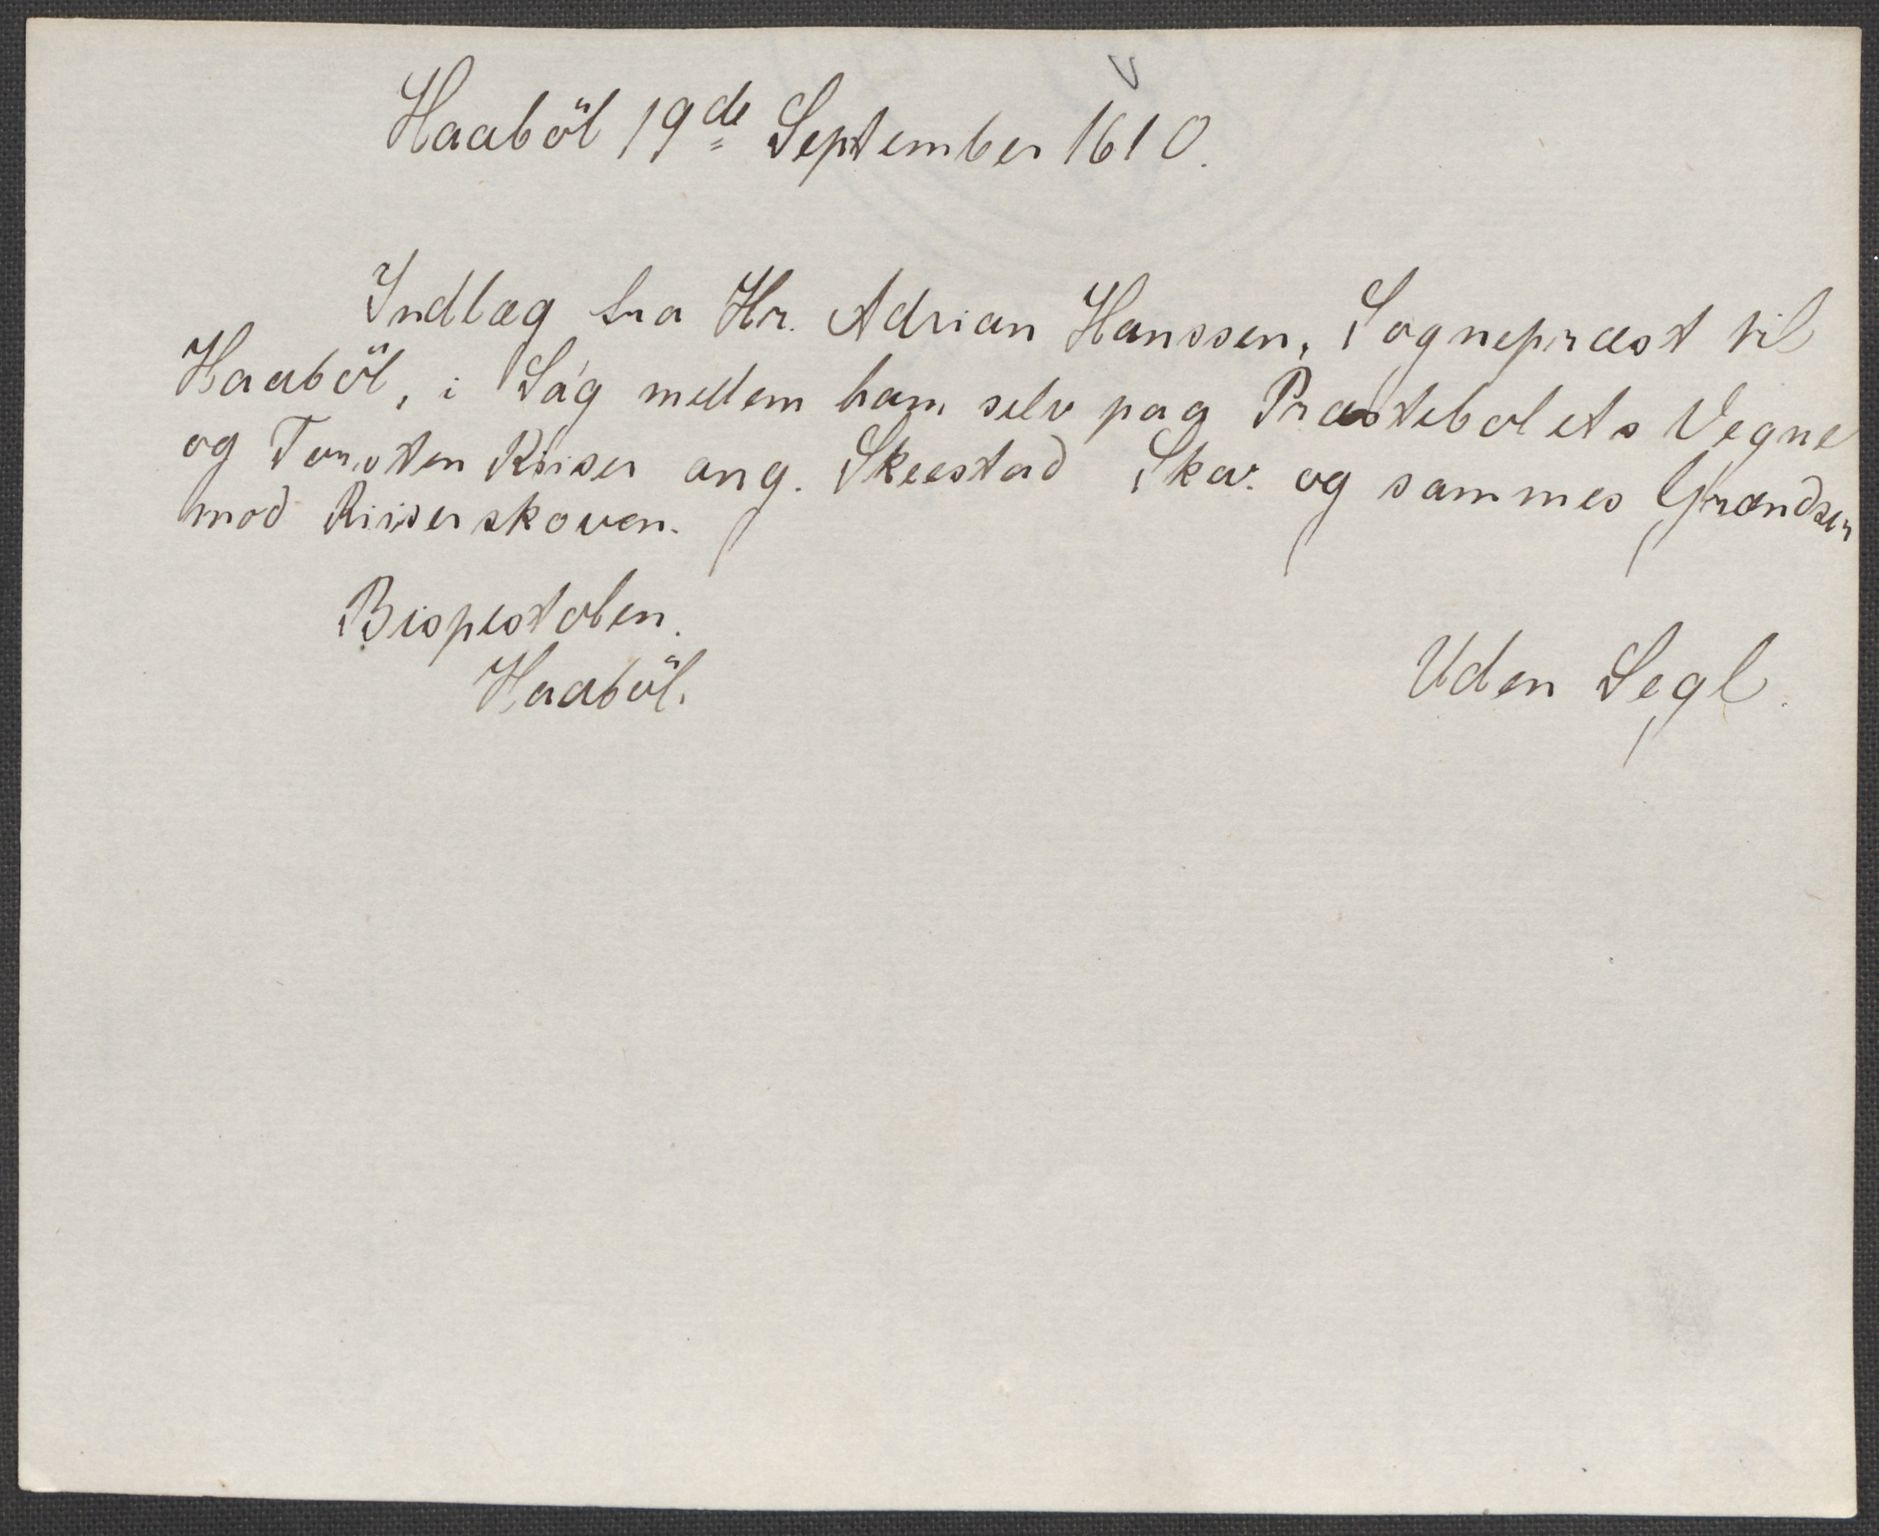 Haaböl 19de September 1610.
Indlæg fra Hr. Adrian Hanssen, Sognepræst til
Haaböl, i Sag mellem ham selv paa Præstebolets Vegne
og Torsten Riiser ang. Skeestad Skov og sammes Grændser
mod Riiserskoven.
Bispestolen.
Haaböl.
Uden Segl.